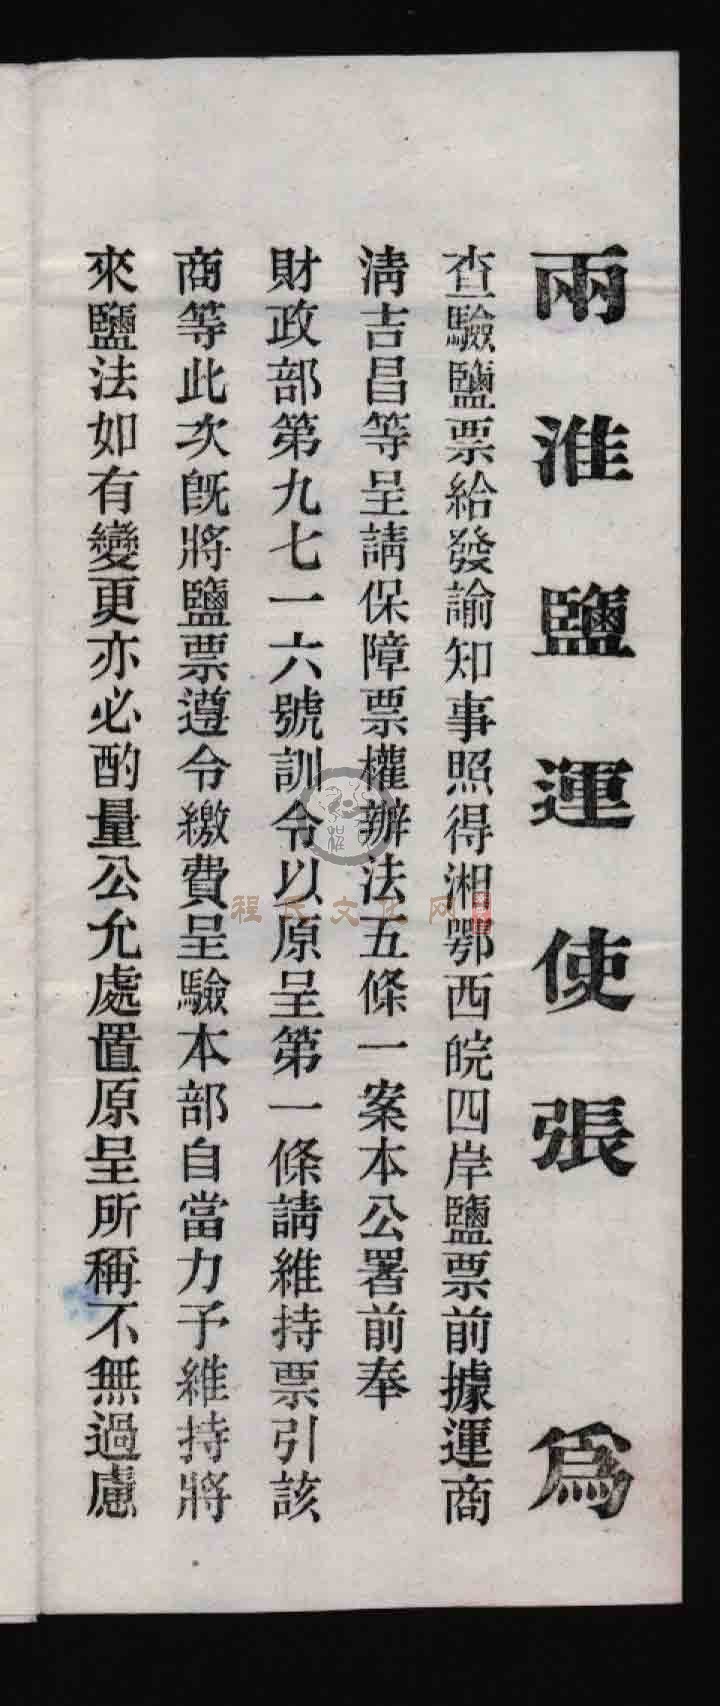 兩淮鹽運使張 爲
查驗鹽票給發諭知事照得湘鄂西皖四岸鹽票前據運商
淸吉昌等呈請保障票權辦法五條一案本公署前奉
財政部第九七一六號訓令以原呈第一條請維持票引該
商等此次旣將鹽票遵令繳費呈驗本部自當力予維持將
來鹽法如有變更亦必酌量公允處置原呈所稱不無過慮
程氏文化网